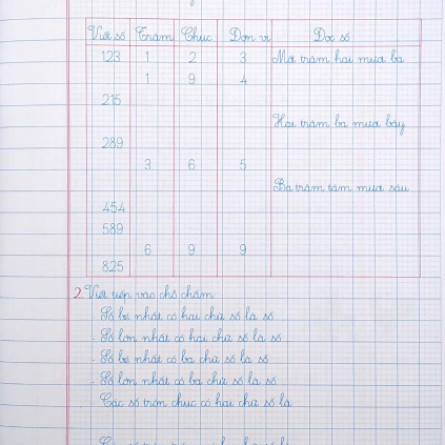 Viết số Trăm Chục Đơn vị Đọc số
123 1 2 3 Một trăm hai mươi ba
1 9 4
215
Hai trăm ba mươi bảy
289
3 6 5
Ba trăm tám mươi sáu
454
589
6 9 9
825
2. Viết tiếp vào chỗ chấm
- Số bé nhất có hai chữ số là số
- Số lớn nhất có hai chữ số là số
- Số bé nhất có ba chữ số là số
- Số lớn nhất có ba chữ số là số
- Các số tròn chục có hai chữ số là